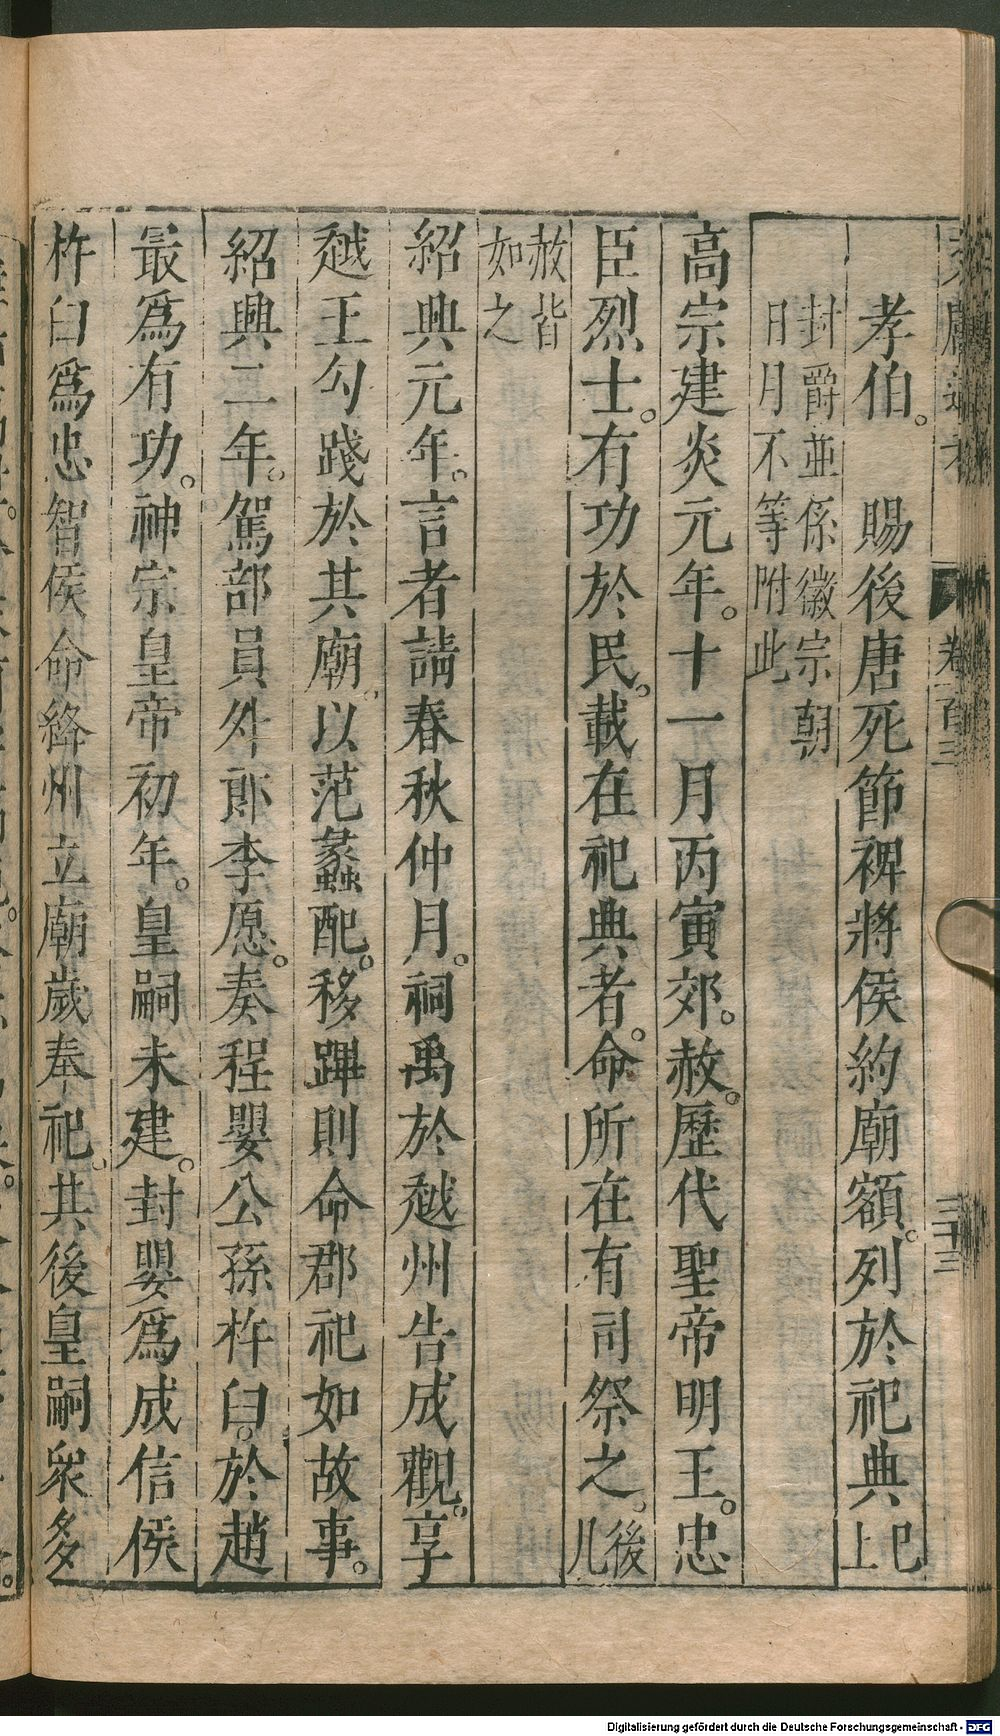 孝伯。　賜後唐死節裨將侯約廟額。列於祀典巳上
封爵並係徽宗朝
日月不等附此
高宗建炎元年。十一月丙寅郊。赦。歷代聖帝明王。忠
臣烈士。有功於民。載在祀典者。命所在有司祭之。後凡
赦皆
如之
紹興元年。言者請春秋仲月。祠禹於越州告成觀。享
越王勾踐於其廟。以范蠡配。移蹕則命郡祀如故事。
紹興二年。駕部員外郎李愿。奏程嬰公孫杵臼。於趙
最爲有功。神宗皇帝初年。皇嗣未建。封嬰爲成信侯
杵臼爲忠智侯命絳州立廟歲奉祀。其後皇嗣衆多
卷一百三
三十三
Digitalisierung gefördert durch die Deutsche Forschungsgemeinschaft - DFG